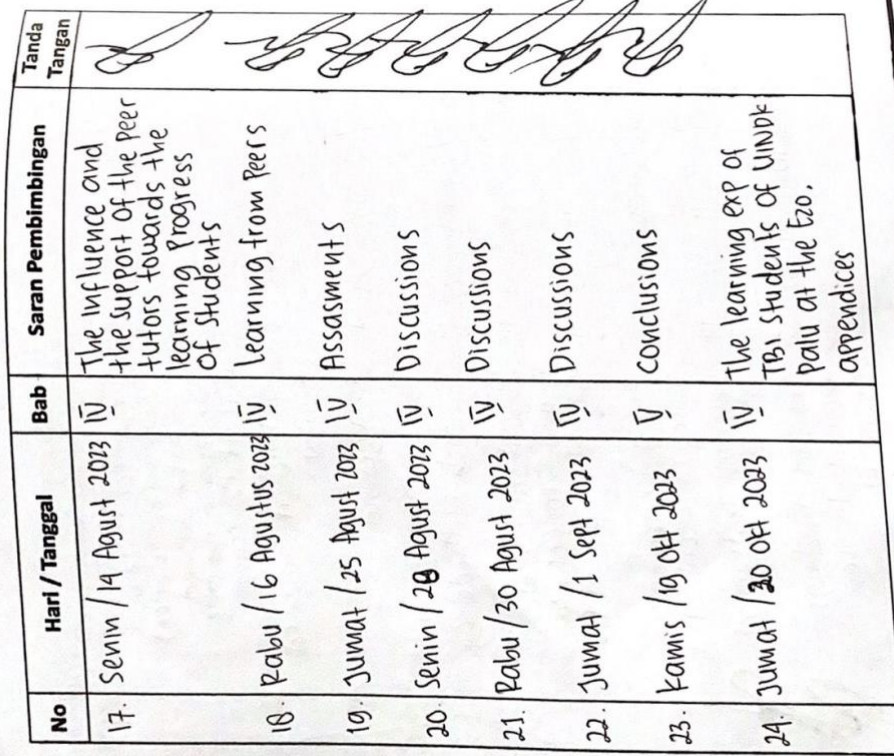 No Hari / Tanggal Bab Saran Pembimbingan Tanda Tangan
17. Senin / 14 Agust 2023 IV The Influence and
the support of the Peer
tutors towards the
learning Progress
of students
18. Rabu / 16 Agustus 2023 IV Learning from Peers
19. Jumat / 25 Agust 2023 IV Assasments
20. Senin / 28 Agust 2023 IV Discussions
21. Rabu / 30 Agust 2023 IV Discussions
22. Jumat / 1 Sept 2023 IV Discussions
23. Kamis / 19 Okt 2023 V Conclusions
24. Jumat / 20 Okt 2023 IV The learning exp of
TBI students of UINDK
Palu at the Ezo.
appendices